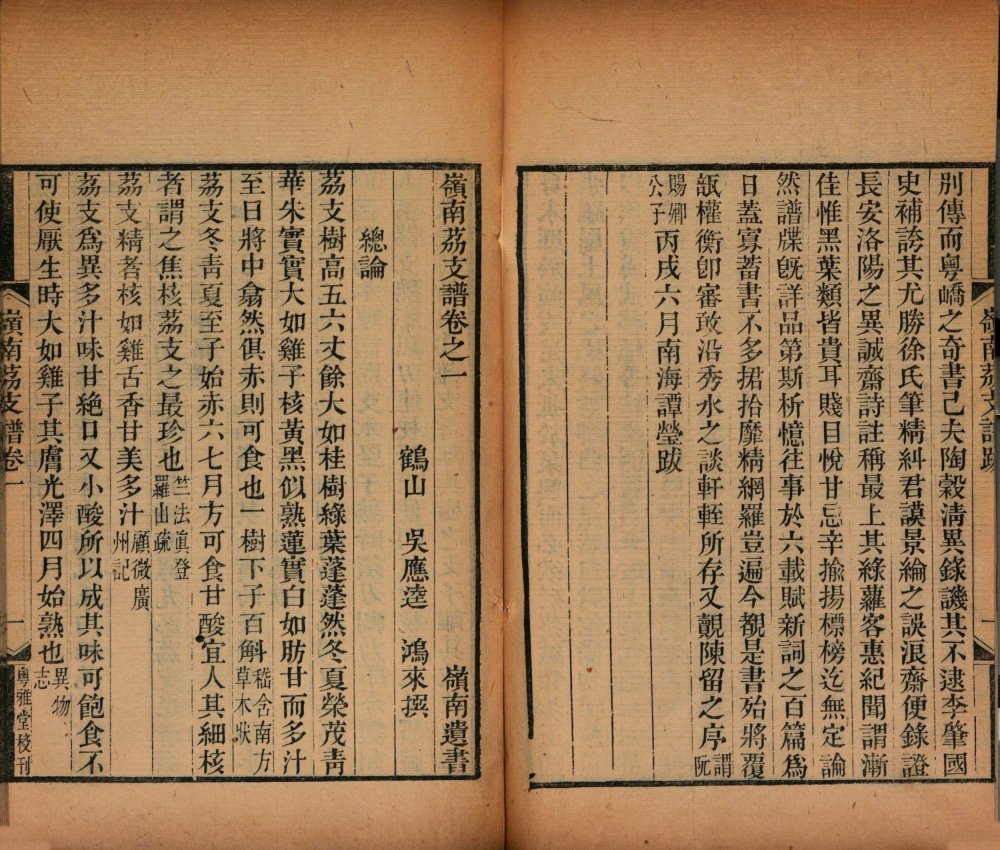 嶺南荔支譜跋
一
別傳而粵嶠之奇書己夫陶穀淸異錄譏其不逮李肇國
史補誇其尤勝徐氏筆精糾君謨景綸之誤浪齋便錄證
長安洛陽之異誠齋詩註稱最上其綠蘿客惠紀聞謂漸
佳惟黑葉類皆貴耳賤目悅甘忌辛揄揚標榜迄無定論
然譜牒旣詳品第斯析憶往事於六載賦新詞之百篇爲
日蓋寡蓄書不多捃拾靡精網羅豈遍今覩是書殆將覆
瓿權衡卽審敢沿秀水之談軒輊所存又覿陳留之序謂阮
賜卿公子丙戌六月南海譚瑩跋
嶺南荔支譜卷之一　嶺南遺書
鶴山　吳應逵　鴻來撰
總論
荔支樹高五六丈餘大如桂樹綠葉蓬蓬然冬夏榮茂靑
華朱實實大如雞子核黃黑似熟蓮實白如肪甘而多汁
至日將中翕然俱赤則可食也一樹下子百斛嵇含南方草木狀
荔支冬靑夏至子始赤六七月方可食甘酸宜人其細核
者謂之焦核荔支之最珍也竺法眞登羅山疏
荔支精者核如雞舌香甘美多汁顧微廣州記
荔支爲異多汁味甘絶口又小酸所以成其味可飽食不
可使厭生時大如雞子其膚光澤四月始熟也異物志
嶺南荔支譜卷一
一
粵雅堂校刊